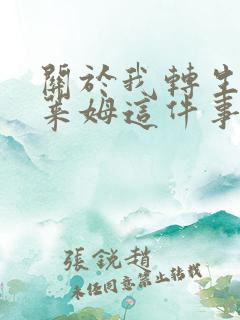 關於我轉生
萊姆這件事
張銳趙
未經同意禁止轉載